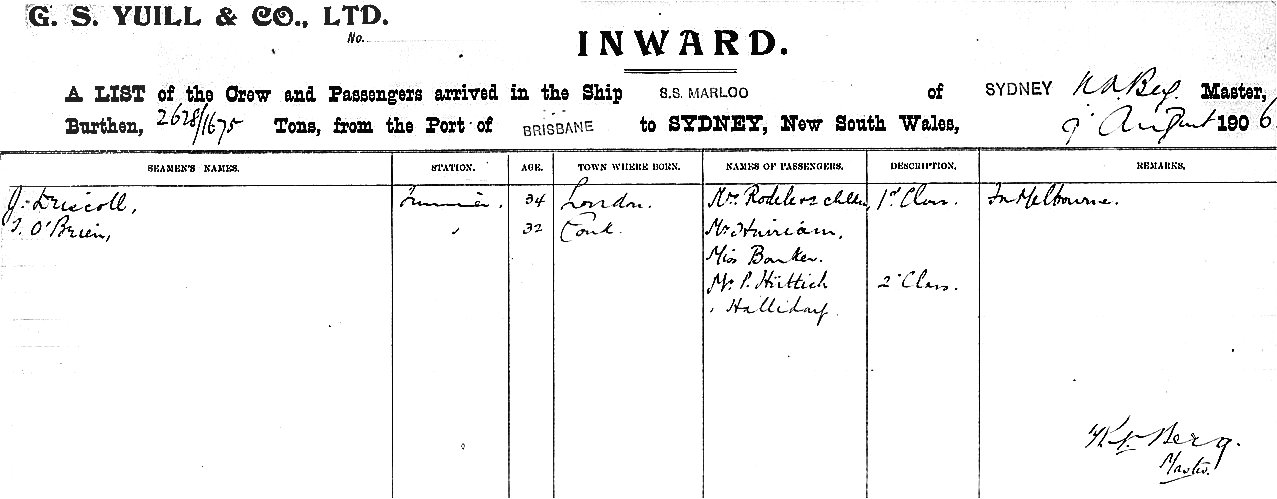 G. S. YUILL & CO., LTD.
No.
INWARD.
A LIST of the Crew and Passengers arrived in the Ship S.S. MARLOO of SYDNEY Berg Master,
Burthen, 2628/1675 Tons, from the Port of BRISBANE to SYDNEY, New South Wales, August 1906
SEAMEN'S NAMES. STATION. AGE. TOWN WHERE BORN. NAMES OF PASSENGERS. DESCRIPTION. REMARKS.
J. Driscoll, 34 London. Mrs 1st Class. Melbourne.
O'Brien, 32 Cork. Mr
Miss
Mr P. Hüttich 2 Class.
Berg.
Master.